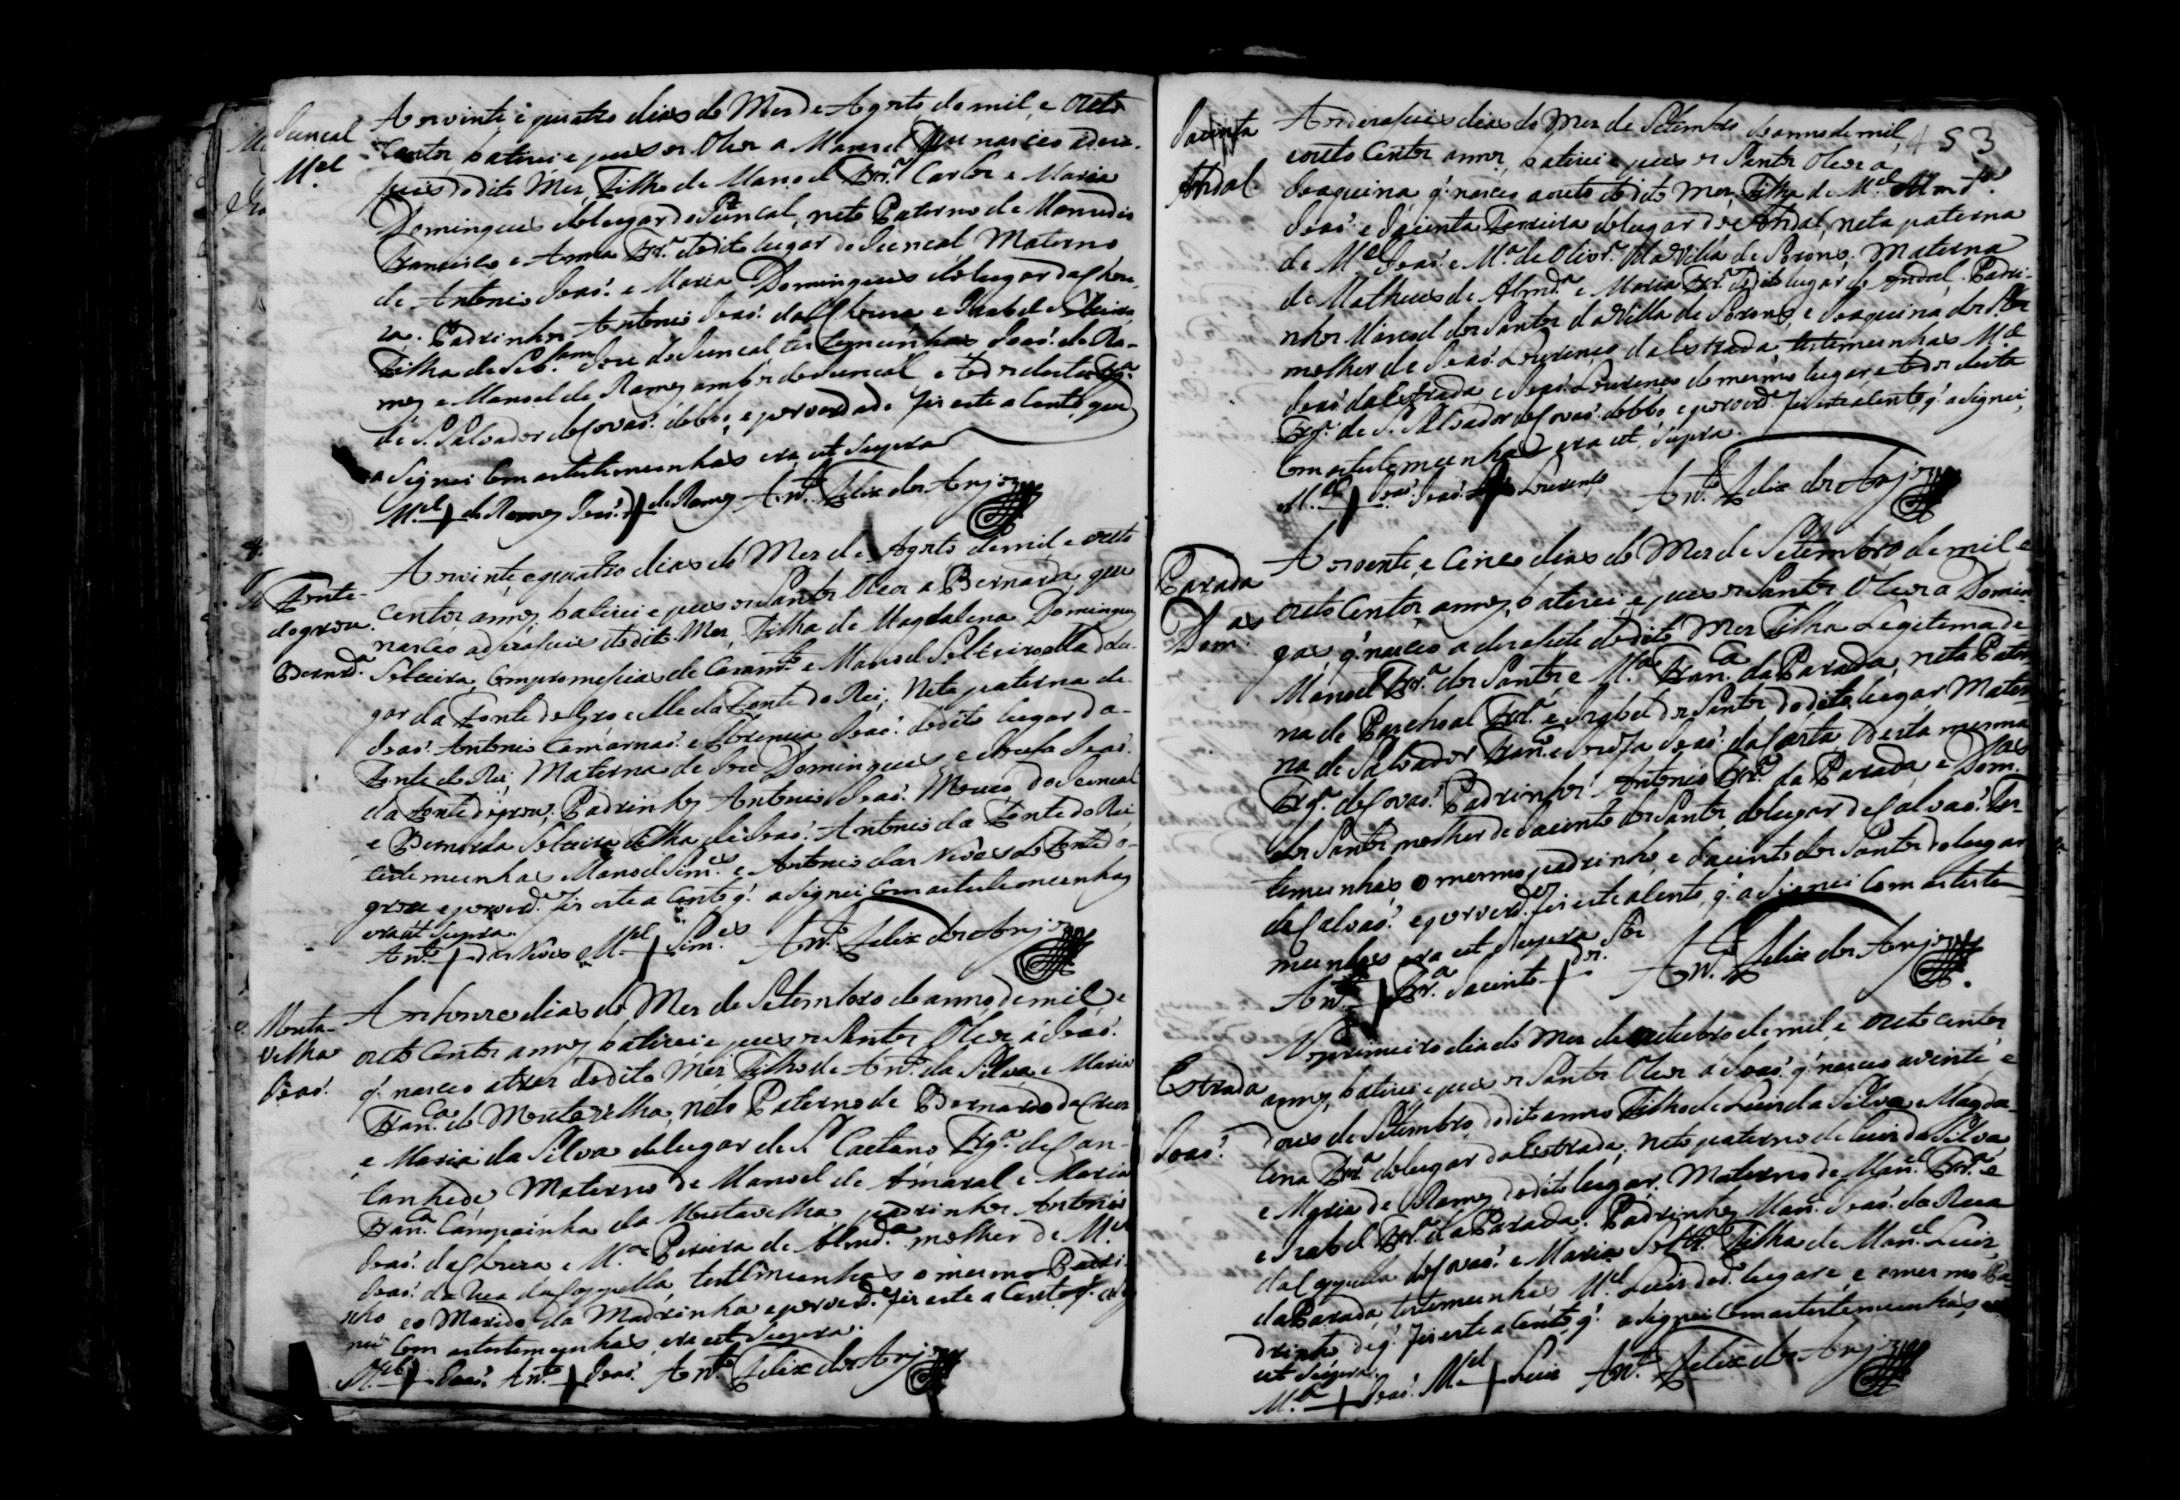 Juncal
M.el
Aos vinte e quatro dias do Mes de Agosto de mil e outo
centos baticei e pus os Oleos a Manoel que nasceo a deza-
seis do dito Mes, Filho de Manoel Fr.ra Carlos e Maria
Domingues do lugar do Juncal, neto Paterno de Manuel
Francisco e Anna Fr.ra do dito lugar do Juncal Materno
de Antonio Joaõ. e Maria Domingues do lugar da Chou-
za. Padrinhos Antonio Joaõ. da Choura e Izabel Solteira
Filha de Seb.am Jose do Juncal, testemunhas Joaõ. de Ra-
mos e Manoel de Ramos ambos do Juncal e todos desta Frg.a
de S. Salvador de Covaõ. do lobo, e por verdade fis este acento, que
asignei com as testemunhas era ut supra
M.el + de Ramos Joaõ. + de Ramos Ant.o Felix dos Anjos
Fonte
do grou.
Bernd.a
Aos vinte e quatro dias do Mes de Agosto de mil e outo
centos annos, baticei e pus os Santos Oleos a Bernarda, que
nasceo a dezaseis do dito Mes, Filha de Magdalena Domingues
Solteira, com promessias de Cazam.to e Manoel Solteiro ella do lu-
gar da Fonte do Gro e elle da Fonte do Rei, Neta paterna de
Joaõ. Antonio Camarnaõ. e Florencia Joaõ. do dito lugar da
Fonte do Rei, Materna de Jose Domingues e Josefa Joaõ.
da Fonte do grou; Padrinhos Antonio Joaõ. Mouco, do Juncal
e Bernarda Solteira Filha de Joaõ. Antonio da Fonte do Rei
testemunhas Manoel Sim.es e Antonio das Neves da Fonte do
grou e por verd.e fis este acento q.' asignei com as testemunhas
era ut supra.
Ant.o + das Neves M.el + Sim.es Ant.o Felix dos Anjos
Mouta
Velha
Joaõ.
Aos honze dias do Mes de Setembro do anno de mil e
outo centos annos, baticei e pus os Santos Oleos á Joaõ.
q.' nasceo a tres do dito Mes Filho de Ant.o da Silva e Maria
Fran.ca da Moutavelha, neto Paterno de Bernardo da Cruz
e Maria da Silva do lugar de S. Caetano Frg.a de Can-
tanhede, Materno de Manoel de Amaral e Maria
Fran.ca Campainha da Moutavelha, padrinhos Antonio
Joaõ. da Choura e M.a Pereira de Almd.a molher de M.el
Joaõ. da Rua da Cappella, testemunhas o mesmo Padri-
nho e o Marido da Madrinha e por verd.e fis este acento q.' asig
nei com as testemunhas, era ut supra.
M.el + Joaõ. Ant.o + Joaõ. Ant.o Felix dos Anjos
153
Jacinta
Andal
Aos dezaseis dias do Mes de Setembro do anno de mil
e outo centos annos, baticei e pus os Santos Oleos a
Joaquina q.' nasceo a outo do dito Mes, Filha de M.el
Joaõ. e Jacinta Ferreira do lugar de Andal, neta paterna
de M.el Joaõ. e M.a de Olivr.a da Villa de Sorons. Materna
de Matheus de Almd.a e Maria Fr.ra do dito lugar de Andal, Padri-
nhos Manoel dos Santos da Villa de Sorons, e Joaquina dos
molher de Joaõ. Lourenço da Estrada, testemunhas M.el
Joaõ. da Estrada e Joaõ. Lourenço do mesmo lugar e todos desta
Frg.a de S. Salvador de Covaõ. do lobo e por verd.e fis este acento q.' asignei
com as testemunhas era ut supra.
M.el + Joaõ. Joaõ. + Lourenço Ant.o Felix dos Anjos
Parada
Dom.as
Aos vente, e cinco dias do Mes de Setembro de mil e
outo centos, annos, baticei e pus os Santos Oleos a Domin-
gas q.' nasceo a dezasete do dito Mes Filha Legitema de
Manoel Fr.ra dos Santos e M.a Fran.ca da Parada, neta Pater
na de Paschoal Fr.ra e Izabel dos Santos, do dito lugar, Mater
na de Salvador Fran.co e Jozefa Joaõ. da Corta, desta mesma
Frg.a de Covaõ. Padrinhos Antonio Fr.ra da Parada e Dom.as
dos Santos molher de Jacinto dos Santos, do lugar de Calvaõ. Tes-
temunhas, o mesmo padrinho, e Jacinto dos Santos do lugar
de Calvaõ. e por verd.e fis este acento, q.' asignei com as teste
munhas era ut supra
Ant.o + Fr.ra Jacinto + dos S.tos Ant.o Felix dos Anjos
Estrada
Joaõ.
No primeiro dia do Mes de outubro de mil, e outo centos
annos, baticei e pus os Santos Oleos á Joaõ. q.' nasceo a vinte e
doeis de Setembro do dito anno Filho de Luis da Silva e Magda-
lena Fr.ra do lugar da Estrada, neto paterno de Luis da Silva
e Maria de Ramos do dito lugar. Materno de Man.el Fr.ra e
e Izabel Fr.ra da Parada. Padrinhos Man.el Joaõ. da Rua
da Cappella de Covaõ. e Maria Solt.ra Filha de Man.el Luis
da Parada, testemunhas M.el Luis do d.o lugar, e o mesmo Pa-
drinho de q.' fis este acento, q.' asignei com as testemunhas, era
ut supra.
M.el + Joaõ. M.el + Luis Ant.o Felix dos Anjos